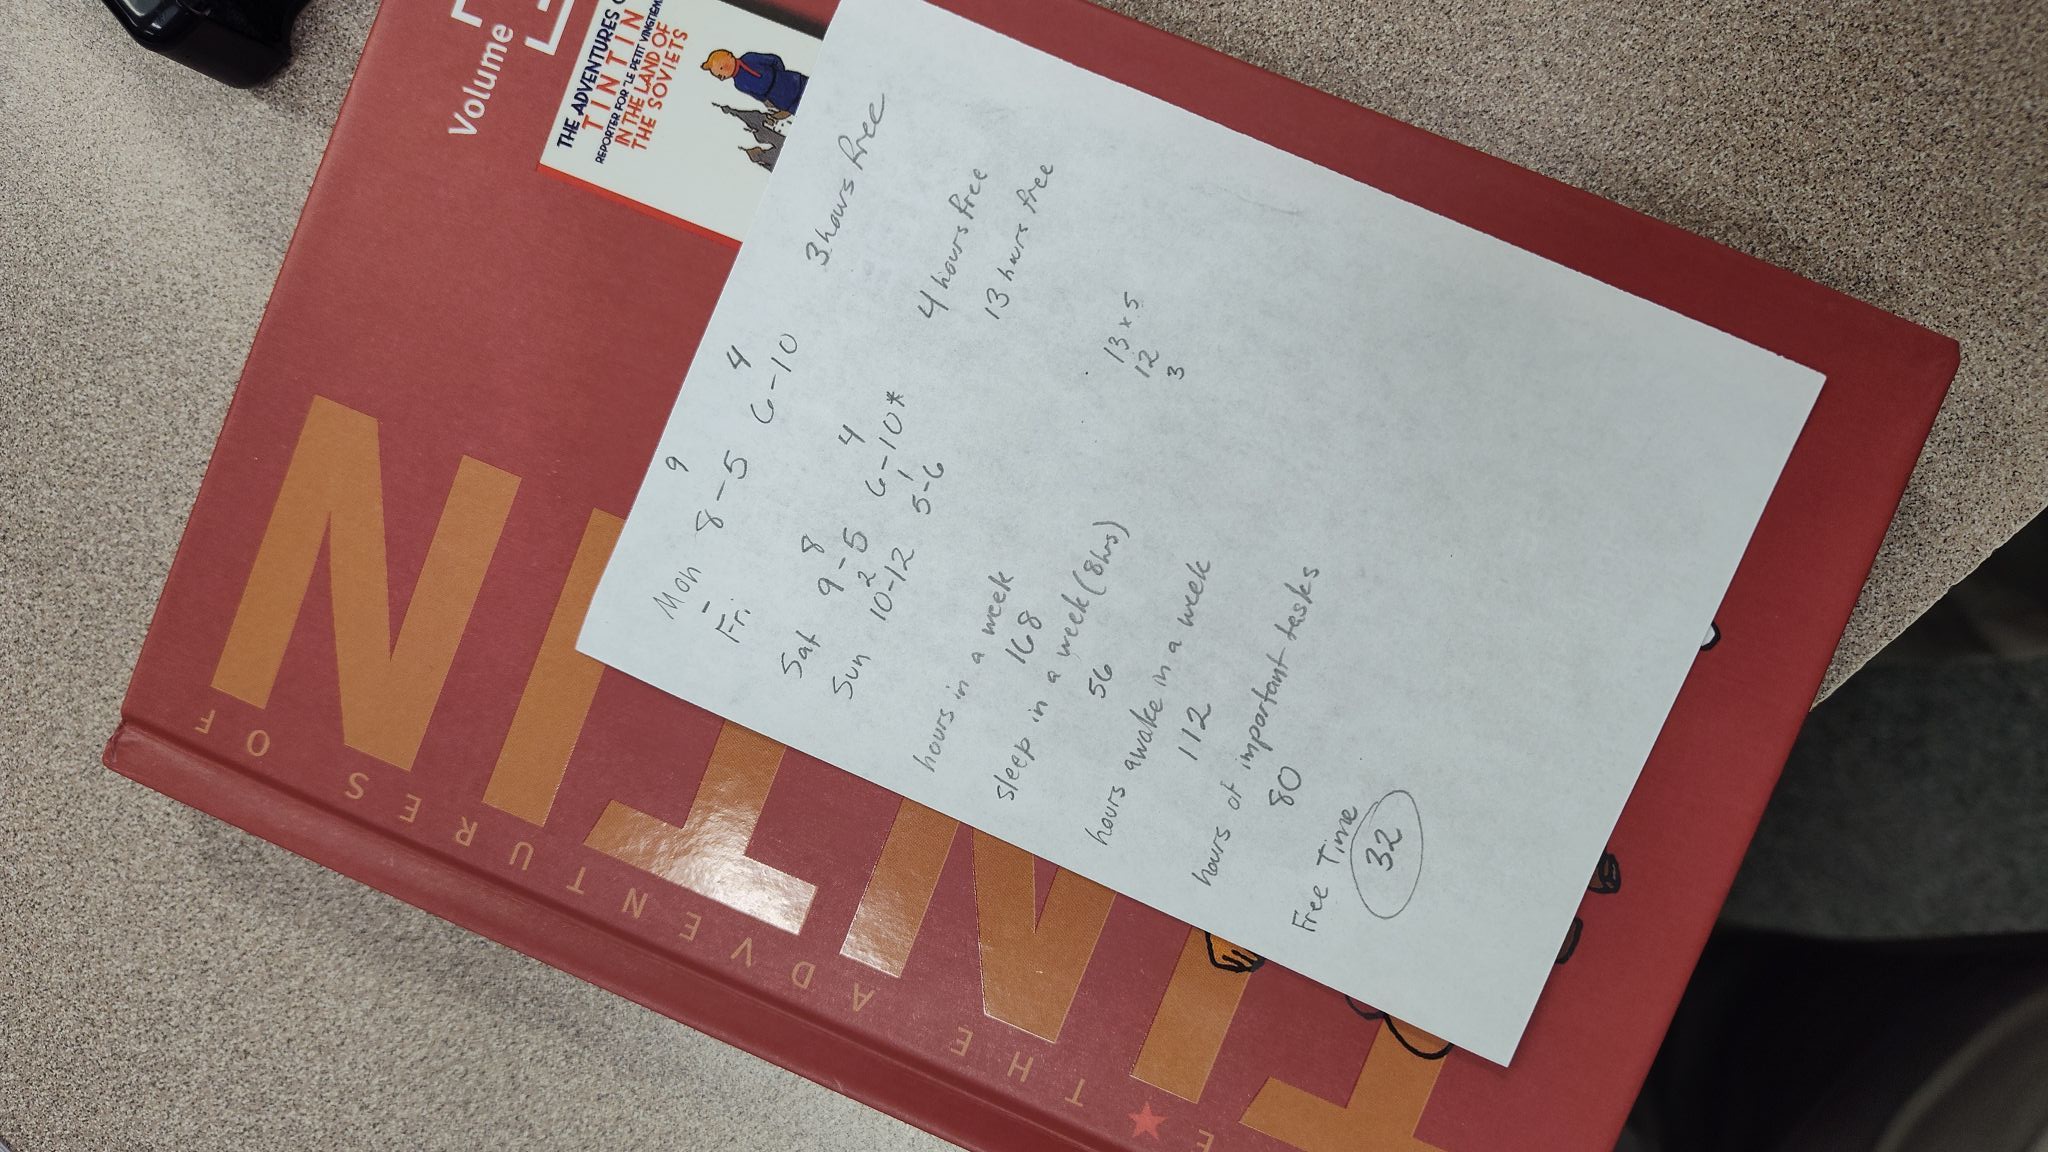 Volume
THE ADVENTURES
TINTIN
REPORTER FOR "LE PETIT VINGTIÈME"
IN THE LAND OF
THE SOVIETS
THE ADVENTURES OF
TINTIN
9 4
Mon 8-5 6-10 3 hours free
-
Fri
8 4
Sat 9-5 6-10* 4 hours free
2 1
Sun 10-12 5-6 13 hours free
hours in a week
168
sleep in a week (8hrs)
56
hours awake in a week
112
hours of important tasks
80
Free Time
32
13 x 5
12
3